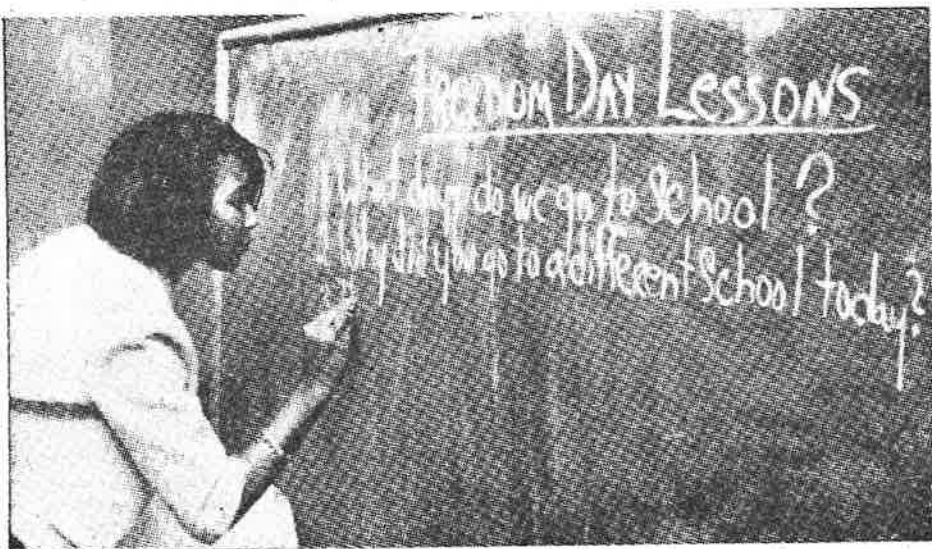 FREEDOM DAY LESSONS
What days do we go to School ?
Why did you go to a different School today?